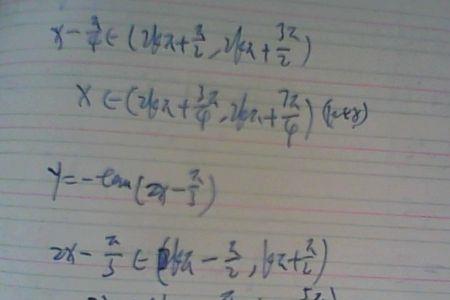 x-π/4∈(2kπ+π/2,2kπ+3π/2)
x∈(2kπ+3π/4,2kπ+7π/4)(k∈z)
y=-tan(2x-π/3)
2x-π/3∈(kπ-π/2,kπ+π/2)